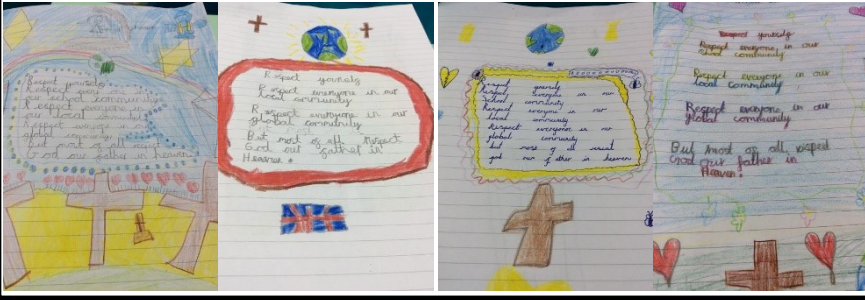 Respect yourself
Respect everyone in
our school community
Respect everyone in
our local
Respect everyone in our
global
but most of all
God our father in heaven
Respect yourself
Respect everyone in our
local community
Respect everyone in our
global community
But most of all Respect
God our father in
Heaven.
Respect
Respect everyone in our
School community
Respect everyone in our
local community
Respect everyone in our
global community
but most of all
god our father in heaven
Respect yourself
Respect everyone in our
community
Respect everyone in our
local community
Respect everyone in our
global community
But most of all,
God our father in
Heaven!